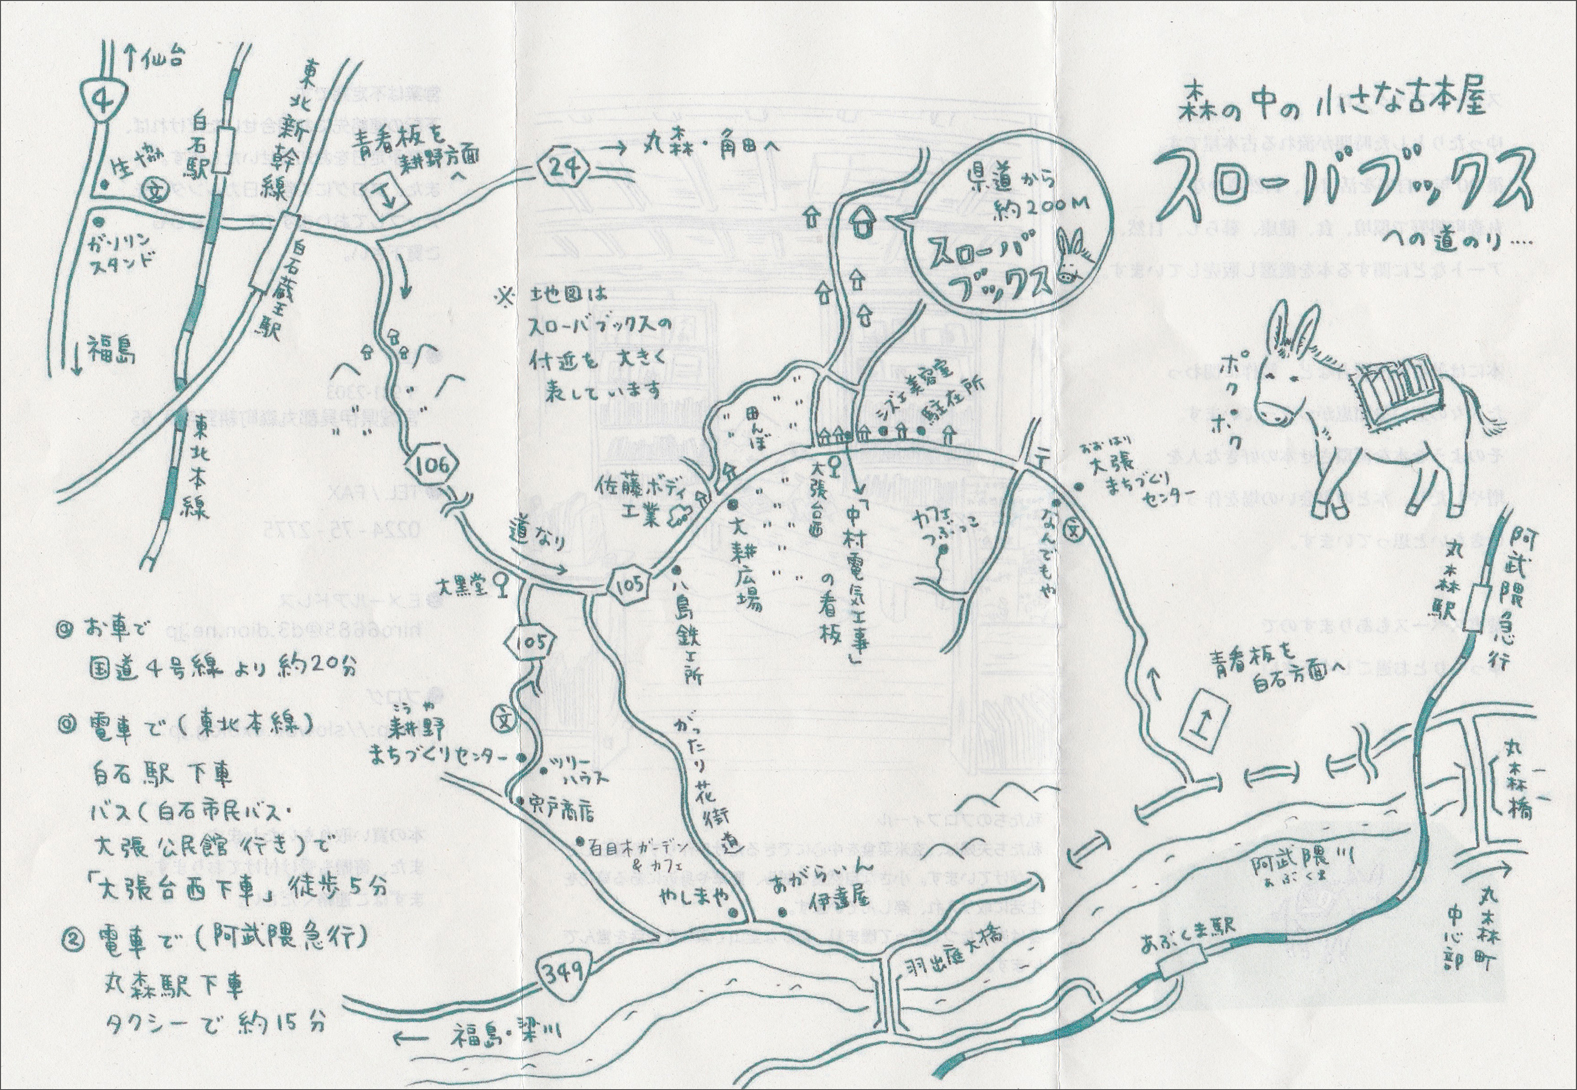 森の中の小さな古本屋
スローバブックス
への道のり….
↑仙台
4
生協
文
白石駅
東北新幹線
青看板を
耕野方面へ
24
→ 丸森・角田へ
ガソリン
スタンド
白石蔵王駅
↓福島
東北本線
※ 地図は
スローバブックスの
付近を大きく
表しています
県道から
約200M
スローバ
ブックス
ポクポク
106
道なり
大黒堂
105
105
田んぼ
佐藤ボディ
工業
大耕広場
八島鉄工所
大張台西
「中村電気工事」
の看板
シズエ美容室
駐在所
カフェ
つぶっこ
〒
おおはり
大張
まちづくり
センター
なんでもや
文
青看板を
白石方面へ
丸森駅
阿武隈急行
丸森橋
丸森町
中心部
阿武隈川
あぶくま
あぶくま駅
羽出庭大橋
文
こうや
耕野
まちづくりセンター
ツリー
ハウス
宍戸商店
百目木ガーデン
&カフェ
がったり花街道
やしまや
あがらいん
伊達屋
349
← 福島・梁川
◎ お車で
国道4号線より約20分
電車で(東北本線)
白石駅下車
バス(白石市民バス・
大張公民館行き)で
「大張台西下車」徒歩5分
② 電車で(阿武隈急行)
丸森駅下車
タクシーで約15分